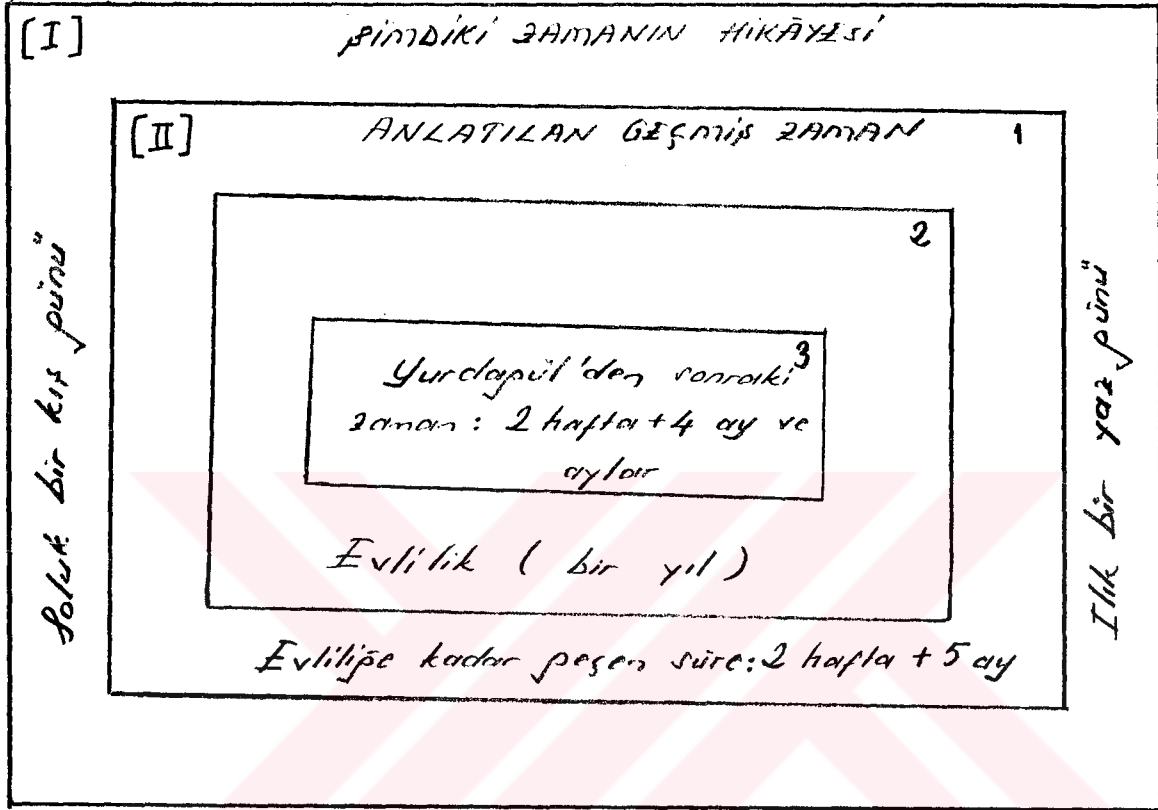 [I] ŞİMDİKİ ZAMANIN HİKÂYESİ
[II] ANLATILAN GEÇMİŞ ZAMAN 1
2
3
Yurdagül'den sonraki
zaman: 2 hafta + 4 ay ve
aylar
Evlilik ( bir yıl )
Evliliğe kadar geçen süre: 2 hafta + 5 ay
Soluk bir kış günü
Ilık bir yaz günü